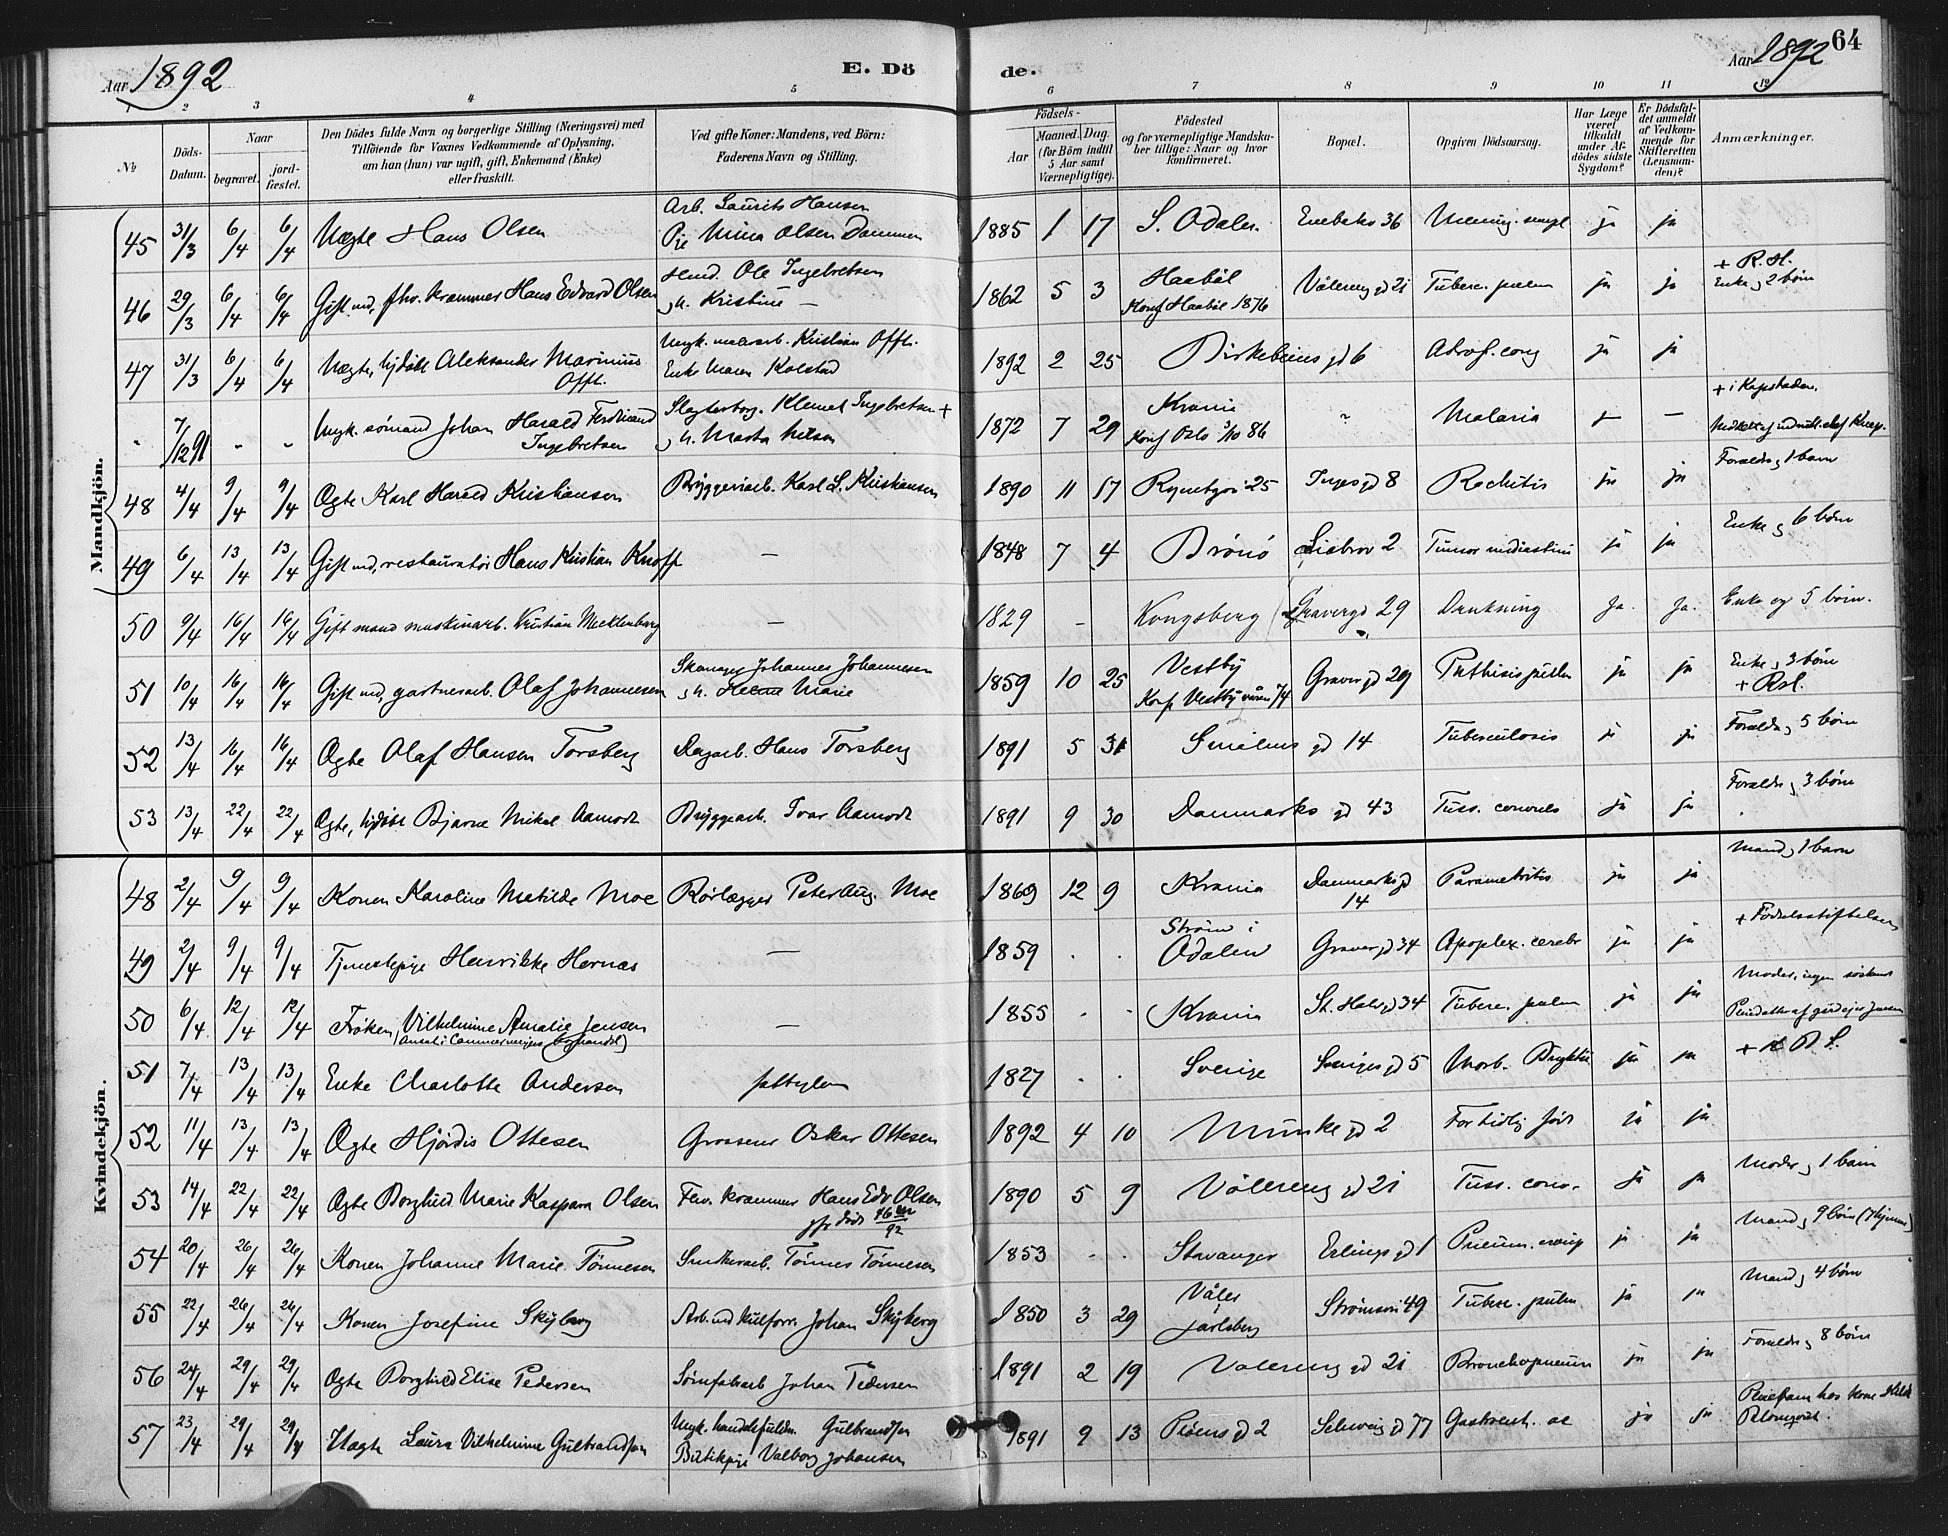 Aar 1892
E. Dö
de.
Aar 1892
64
1 2 3 4 5 6 7 8 9 10 11 12
№
Döds-Datum.
Naar
begravet.
jord-fæstet.
Den Dödes fulde Navn og borgerlige Stilling (Næringsvei) med
Tilföiende for Voxnes Vedkommende af Oplysning,
om han (hun) var ugift, gift, Enkemand (Enke)
eller fraskilt.
Ved gifte Koner: Mandens, ved Börn:
Faderens Navn og Stilling.
Födsels-
Aar
Maaned. Dag.
(for Börn indtil
5 Aar samt
Værnepligtige).
Födested
og for værnepligtige Mandska-
ber tillige: Naar og hvor
konfirmeret.
Bopæl.
Opgiven Dödsaarsag.
Har Læge
været
tilkaldt
under Af-
dödes sidste
Sygdom?
Er Dödsfal-
det anmeldt
af Vedkom-
mende for
Skifteretten
(Lensman-
den)?
Anmærkninger.
Mandkjön.
45 31/3 6/4 6/4 Uægte Hans Olsen Arb. Laurits Hansen
Pige Mina Olsen Dammen 1885 1 17 S. Odalen. Enebaks 36 ja ja
46 29/3 6/4 6/4 Gift md, fhv. kræmmer Hans Edvard Olsen Ole Ingebretsen
Kristine — 1862 5 3 Haabøl
Konf. Haabøl 1876 Vålereng gd 21 Tuberc. pulm ja ja + R. H.
Enke, 2 børn
47 31/3 6/4 6/4 Uægte, hjdøbt Aleksander Marinius
Offt. Ungk. malerarb. Kristian Offt.
Enke Maren Kolstad 1892 2 25 Birkebeins gd 6 Atrof. cong ja ja
" 7/12 91 " " Ungk. sømand Johan Harald Ferdinand
Ingebretsen Slagterborg. Klemet Ingebretsen +
Marta Nilsen 1872 7 29 Krania
Konf Oslo 3/10 86 Malaria — — + i Kapstaden.
48 4/4 9/4 9/4 Ægte Karl Harald Kristiansen Bryggeriarb. Karl L. Kristiansen 1890 11 17 25 Inges gd 8 Rachitis ja ja Forældre, 1 barn
49 6/4 13/4 13/4 Gift md, restauratør Hans Kristian Knoff — 1848 7 4 Brønø Liabrov 2 Tumor mediastini ja ja Enke, 6 børn
50 9/4 16/4 16/4 Gift mand maskinarb. Kristian Mecklenburg — 1829 - Kongsberg Gravergd 29 Drukning Ja. Ja. Enke og 5 børn.
51 10/4 16/4 16/4 Gift md, gartnerarb. Olaf Johannesen Skomager Johannes Johannesen
Helene Marie 1859 10 25 Vestby
Konf Vestby våren 74 Graver gd 29 Phthisis pulm ja ja Enke, 3 børn
+ Rsl.
52 13/4 16/4 16/4 Ægte Olaf Hansen Torsberg Dagarb. Hans Torsberg 1891 5 31 Smålens gd 14 Tuberculosis ja ja Forældre, 5 børn
53 13/4 22/4 22/4 Ægte, hjdøbt Bjarne Mikal Aamodt Bryggearb. Ivar Aamodt 1891 9 30 Danmarks gd 43 Tuss. convuls ja ja Forældre, 3 børn
Kvindekjön.
48 2/4 9/4 9/4 Konen Karoline Matilde Moe Rørlægger Peter Aug. Moe 1869 12 9 Krania Danmarks gd
14 Parametritis ja ja Mand, 1 barn
49 2/4 9/4 9/4 Tjenestepige Henrikke Hernæs — 1859 . . Strøm i
Odalen Graver gd 34 Apoplex. cerebr ja ja + Fødselsstiftelsen
50 6/4 12/4 12/4 Frøken, Vilhelmine Amalie Jensen
(Ansat i Cammermeyers boghandel) — 1855 . . Krania St. Halv. gd 34 Tuberc. pulm ja ja Moder, ingen søskend
51 7/4 13/4 13/4 Enke Charlotte Andersen fattiglem 1827 . . Sverige Sveriges gd 5 Morb. Brightii ja ja
52 11/4 13/4 13/4 Ægte Hjørdis Ottesen Grosserer Oskar Ottesen 1892 4 10 Munke gd 2 For tidlig født ja ja
53 14/4 22/4 22/4 Ægte Borghild Marie Kaspara Olsen Fhv. kræmmer Hans Edv Olsen
jfr døde 46 m/92 1890 5 9 Vålereng gd 21 Tuss. conv. ja ja Moder, 1 barn
54 20/4 26/4 26/4 Konen Johanne Marie Tønnesen Snedkerarb. Tønnes Tønnesen 1853 . . Stavanger Erlings gd 1 Pneum. croup ja ja Mand, 9 børn (7 hjemme)
55 22/4 26/4 26/4 Konen Josefine Skyberg Arb. ved kulforr. Johan Skyberg 1850 3 29 Våler
Jarlsberg Strømsvn 49 Tuberc. pulm ja ja Mand, 4 børn
56 24/4 29/4 29/4 Ægte Borghild Elise Pedersen Sømfabarb Johan Pedersen 1891 2 19 Vålereng gd 21 Bronchopneum ja ja Forældre, 8 børn
57 23/4 29/4 29/4 Uægte Laura Vilhelmine Gulbrandsen Ungk. handelsfuldm. Gulbrandsen
Butikpige Valborg Johansen 1891 9 13 Piøens gd 2 Schweig gd 77 Gastroent. ac ja ja Pleiebarn hos kone Hilda
Blomqvist.